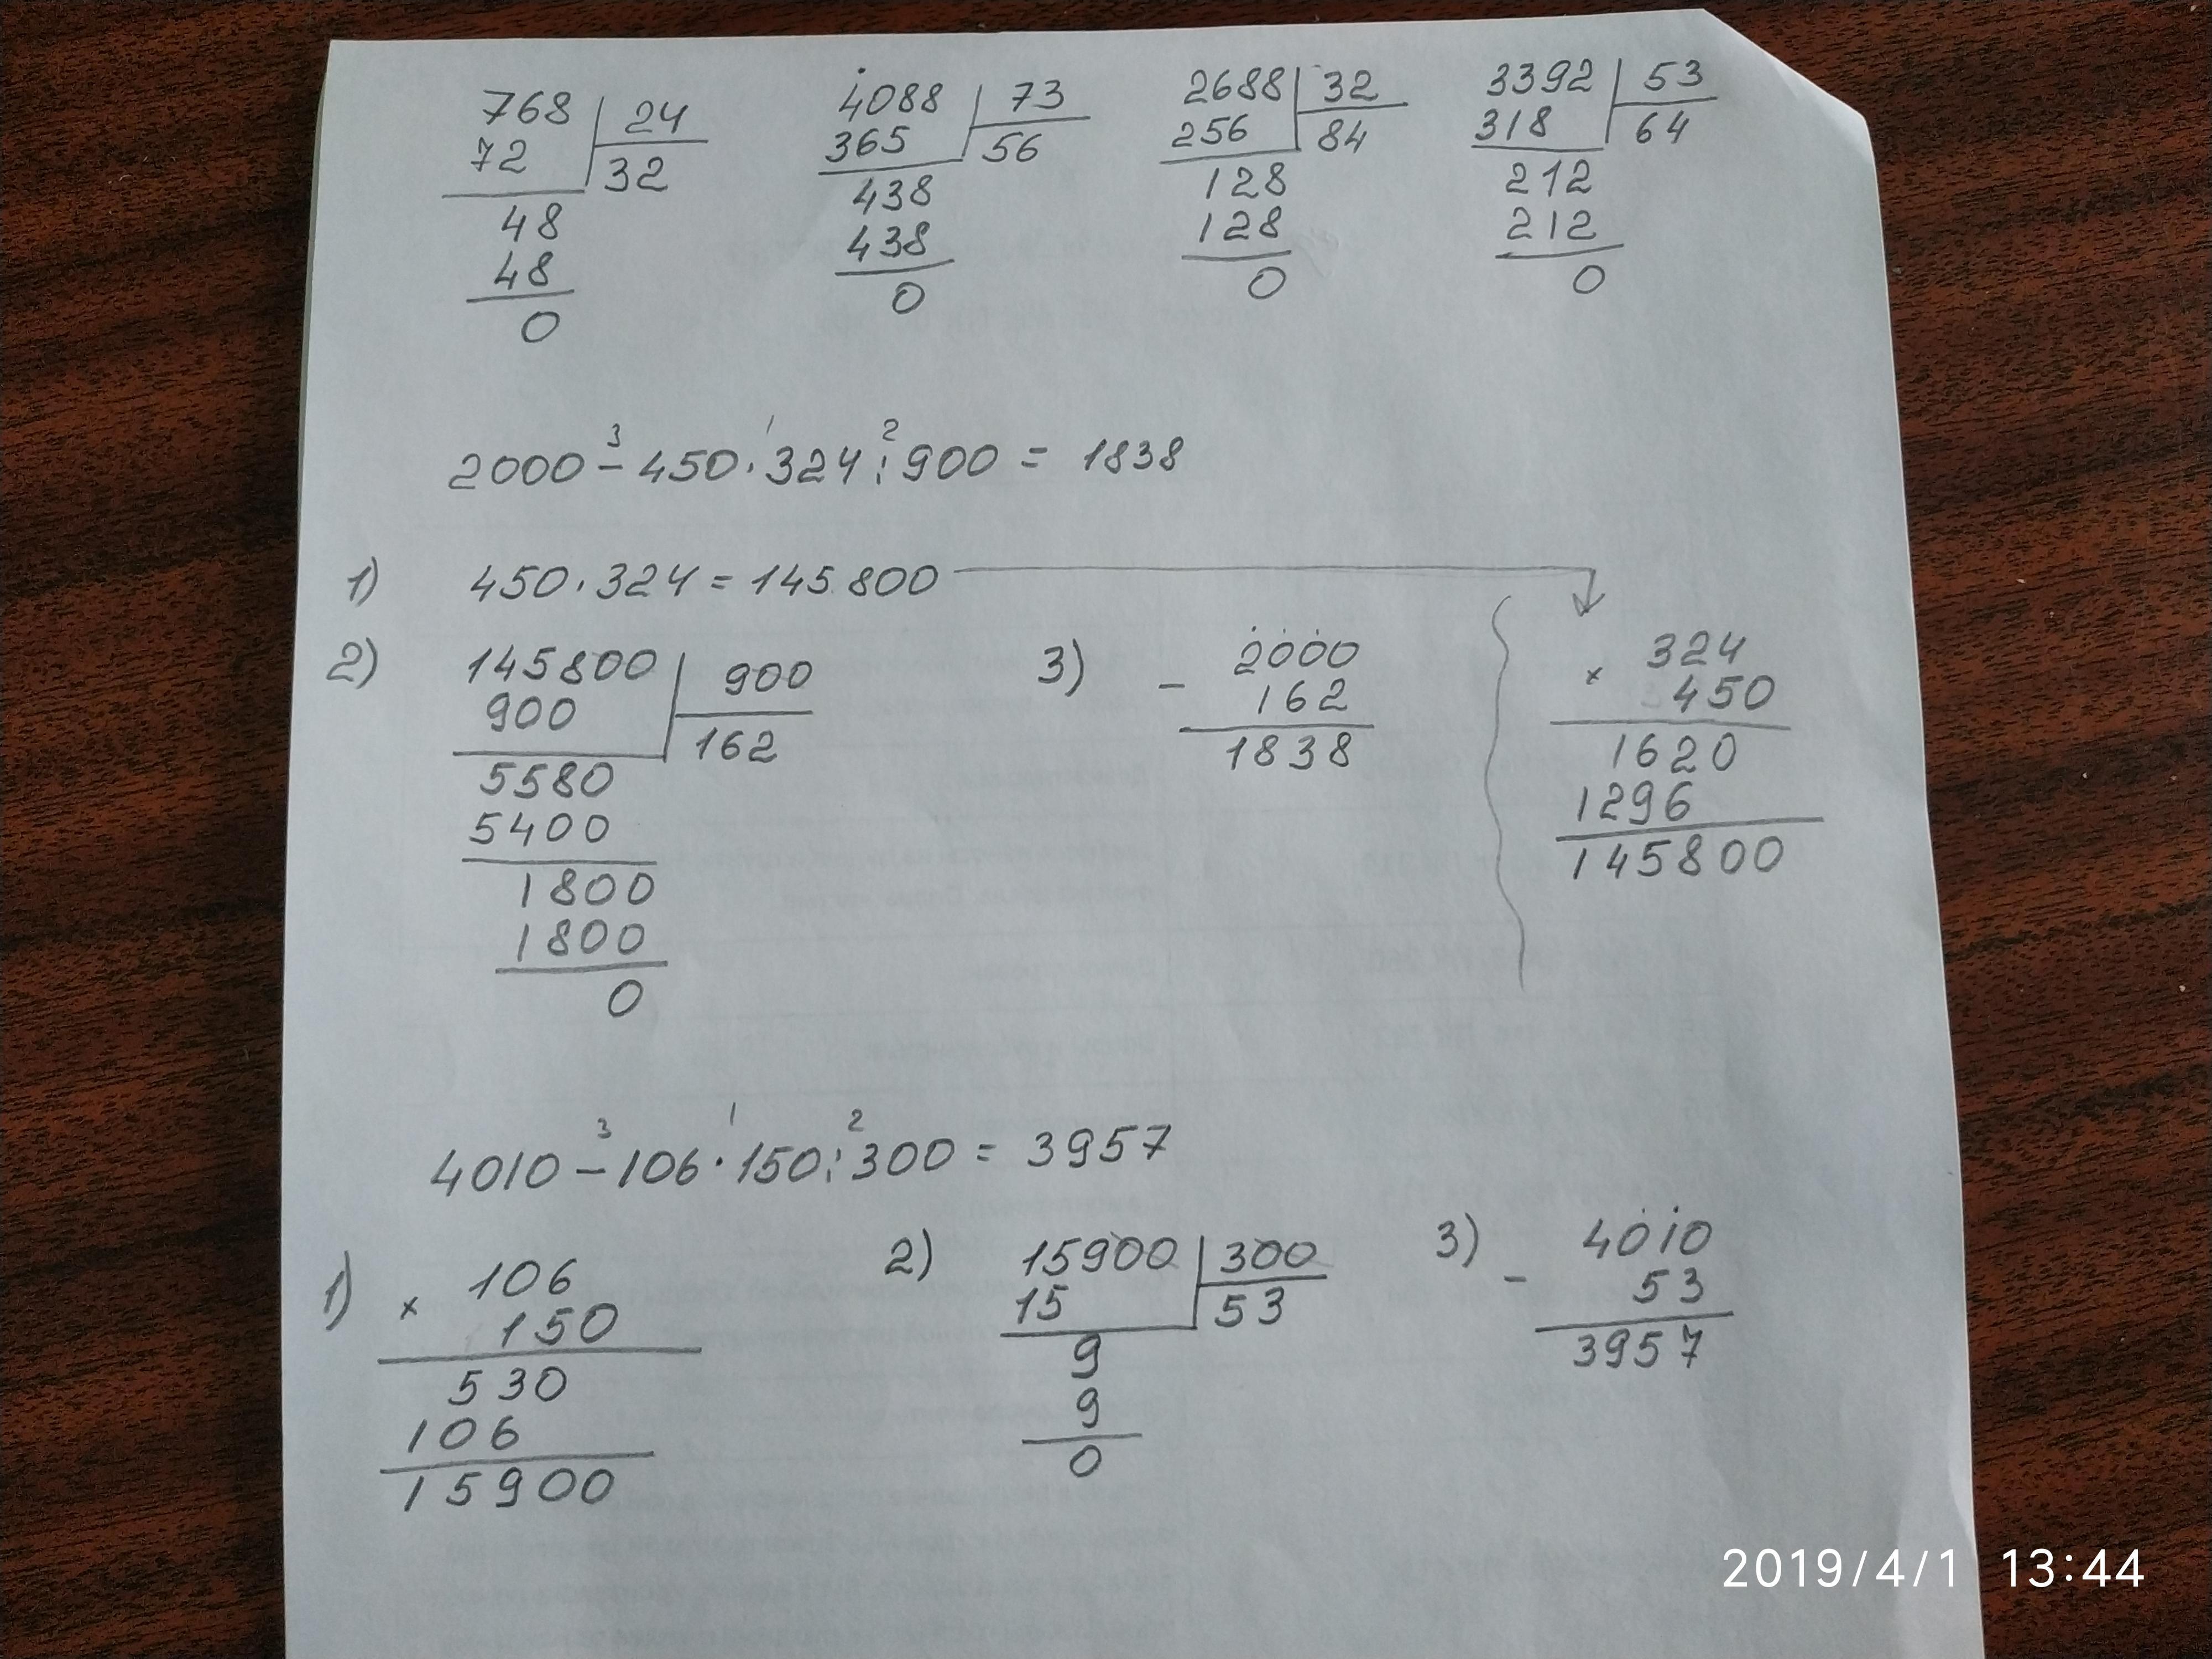 768 | 24
72 | 32
48
48
0
4088 | 73
365 | 56
438
438
0
2688 | 32
256 | 84
128
128
0
3392 | 53
318 | 64
212
212
0
3 1 2
2000 - 450 · 324 : 900 = 1838
1) 450 · 324 = 145800
2) 145800 | 900
900 | 162
5580
5400
1800
1800
0
3) 2000
- 162
1838
324
× 450
1620
1296
145800
3 1 2
4010 - 106 · 150 : 300 = 3957
1) 106
× 150
530
106
15900
2) 15900 | 300
15 | 53
9
9
0
3) 4010
- 53
3957
2019/4/1 13:44